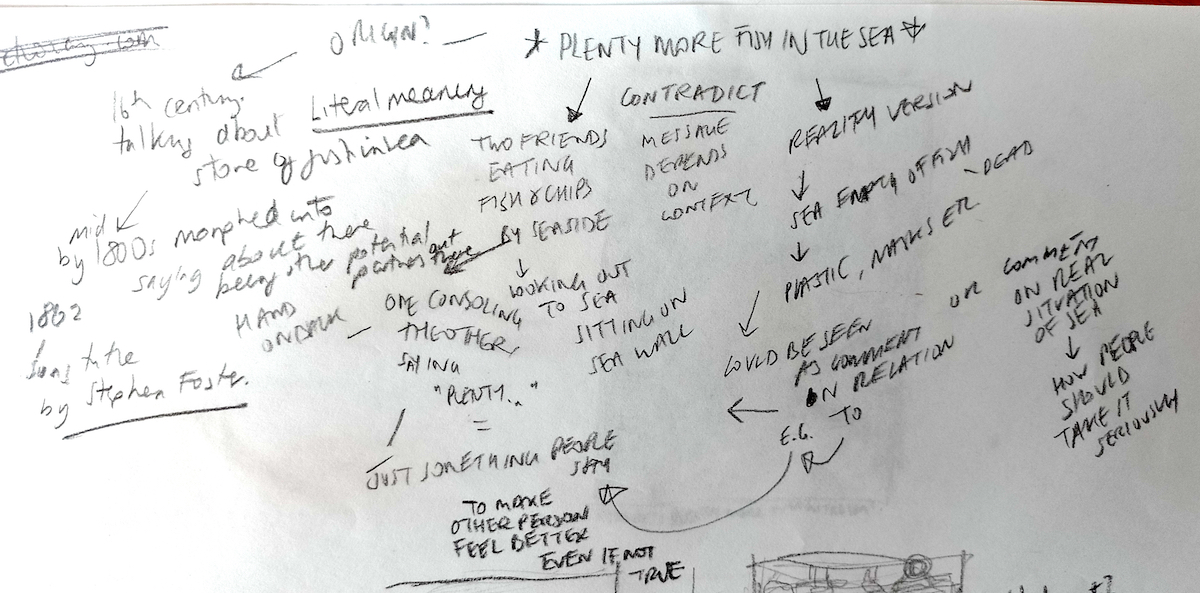 ORIGIN?
* PLENTY MORE FISH IN THE SEA *
16th century
talking about Literal meaning
store of fish in sea
mid
by 1800s morphed into
saying about there
being other potential
partners out there
1862
song title
by Stephen Foster.
TWO FRIENDS
EATING
FISH & CHIPS
BY SEASIDE
LOOKING OUT
TO SEA
SITTING ON
SEA WALL
HAND
ON BACK
ONE CONSOLING
THE OTHER,
SAYING
"PLENTY..."
=
JUST SOMETHING PEOPLE
SAY
TO MAKE
OTHER PERSON
FEEL BETTER
EVEN IF NOT
TRUE
CONTRADICT
MESSAGE
DEPENDS
ON
CONTEXT
REALITY VERSION
SEA EMPTY OF FISH
- DEAD
PLASTIC, MASKS ETC
COULD BE SEEN
AS COMMENT
ON RELATION
TO
E.G.
OR COMMENT
ON REAL
SITUATION
OF SEA
HOW PEOPLE
SHOULD
TAKE IT
SERIOUSLY